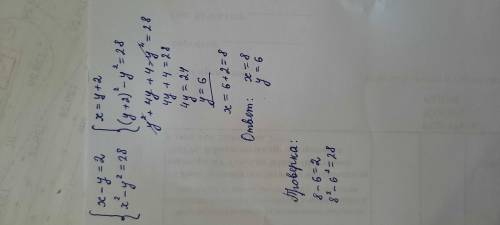 { x - y = 2
x² - y² = 28
{ x = y + 2
(y+2)² - y² = 28
y² + 4y + 4 - y² = 28
4y + 4 = 28
4y = 24
y = 6
x = 6 + 2 = 8
Ответ: x = 8
y = 6
Проверка:
8 - 6 = 2
8² - 6² = 28